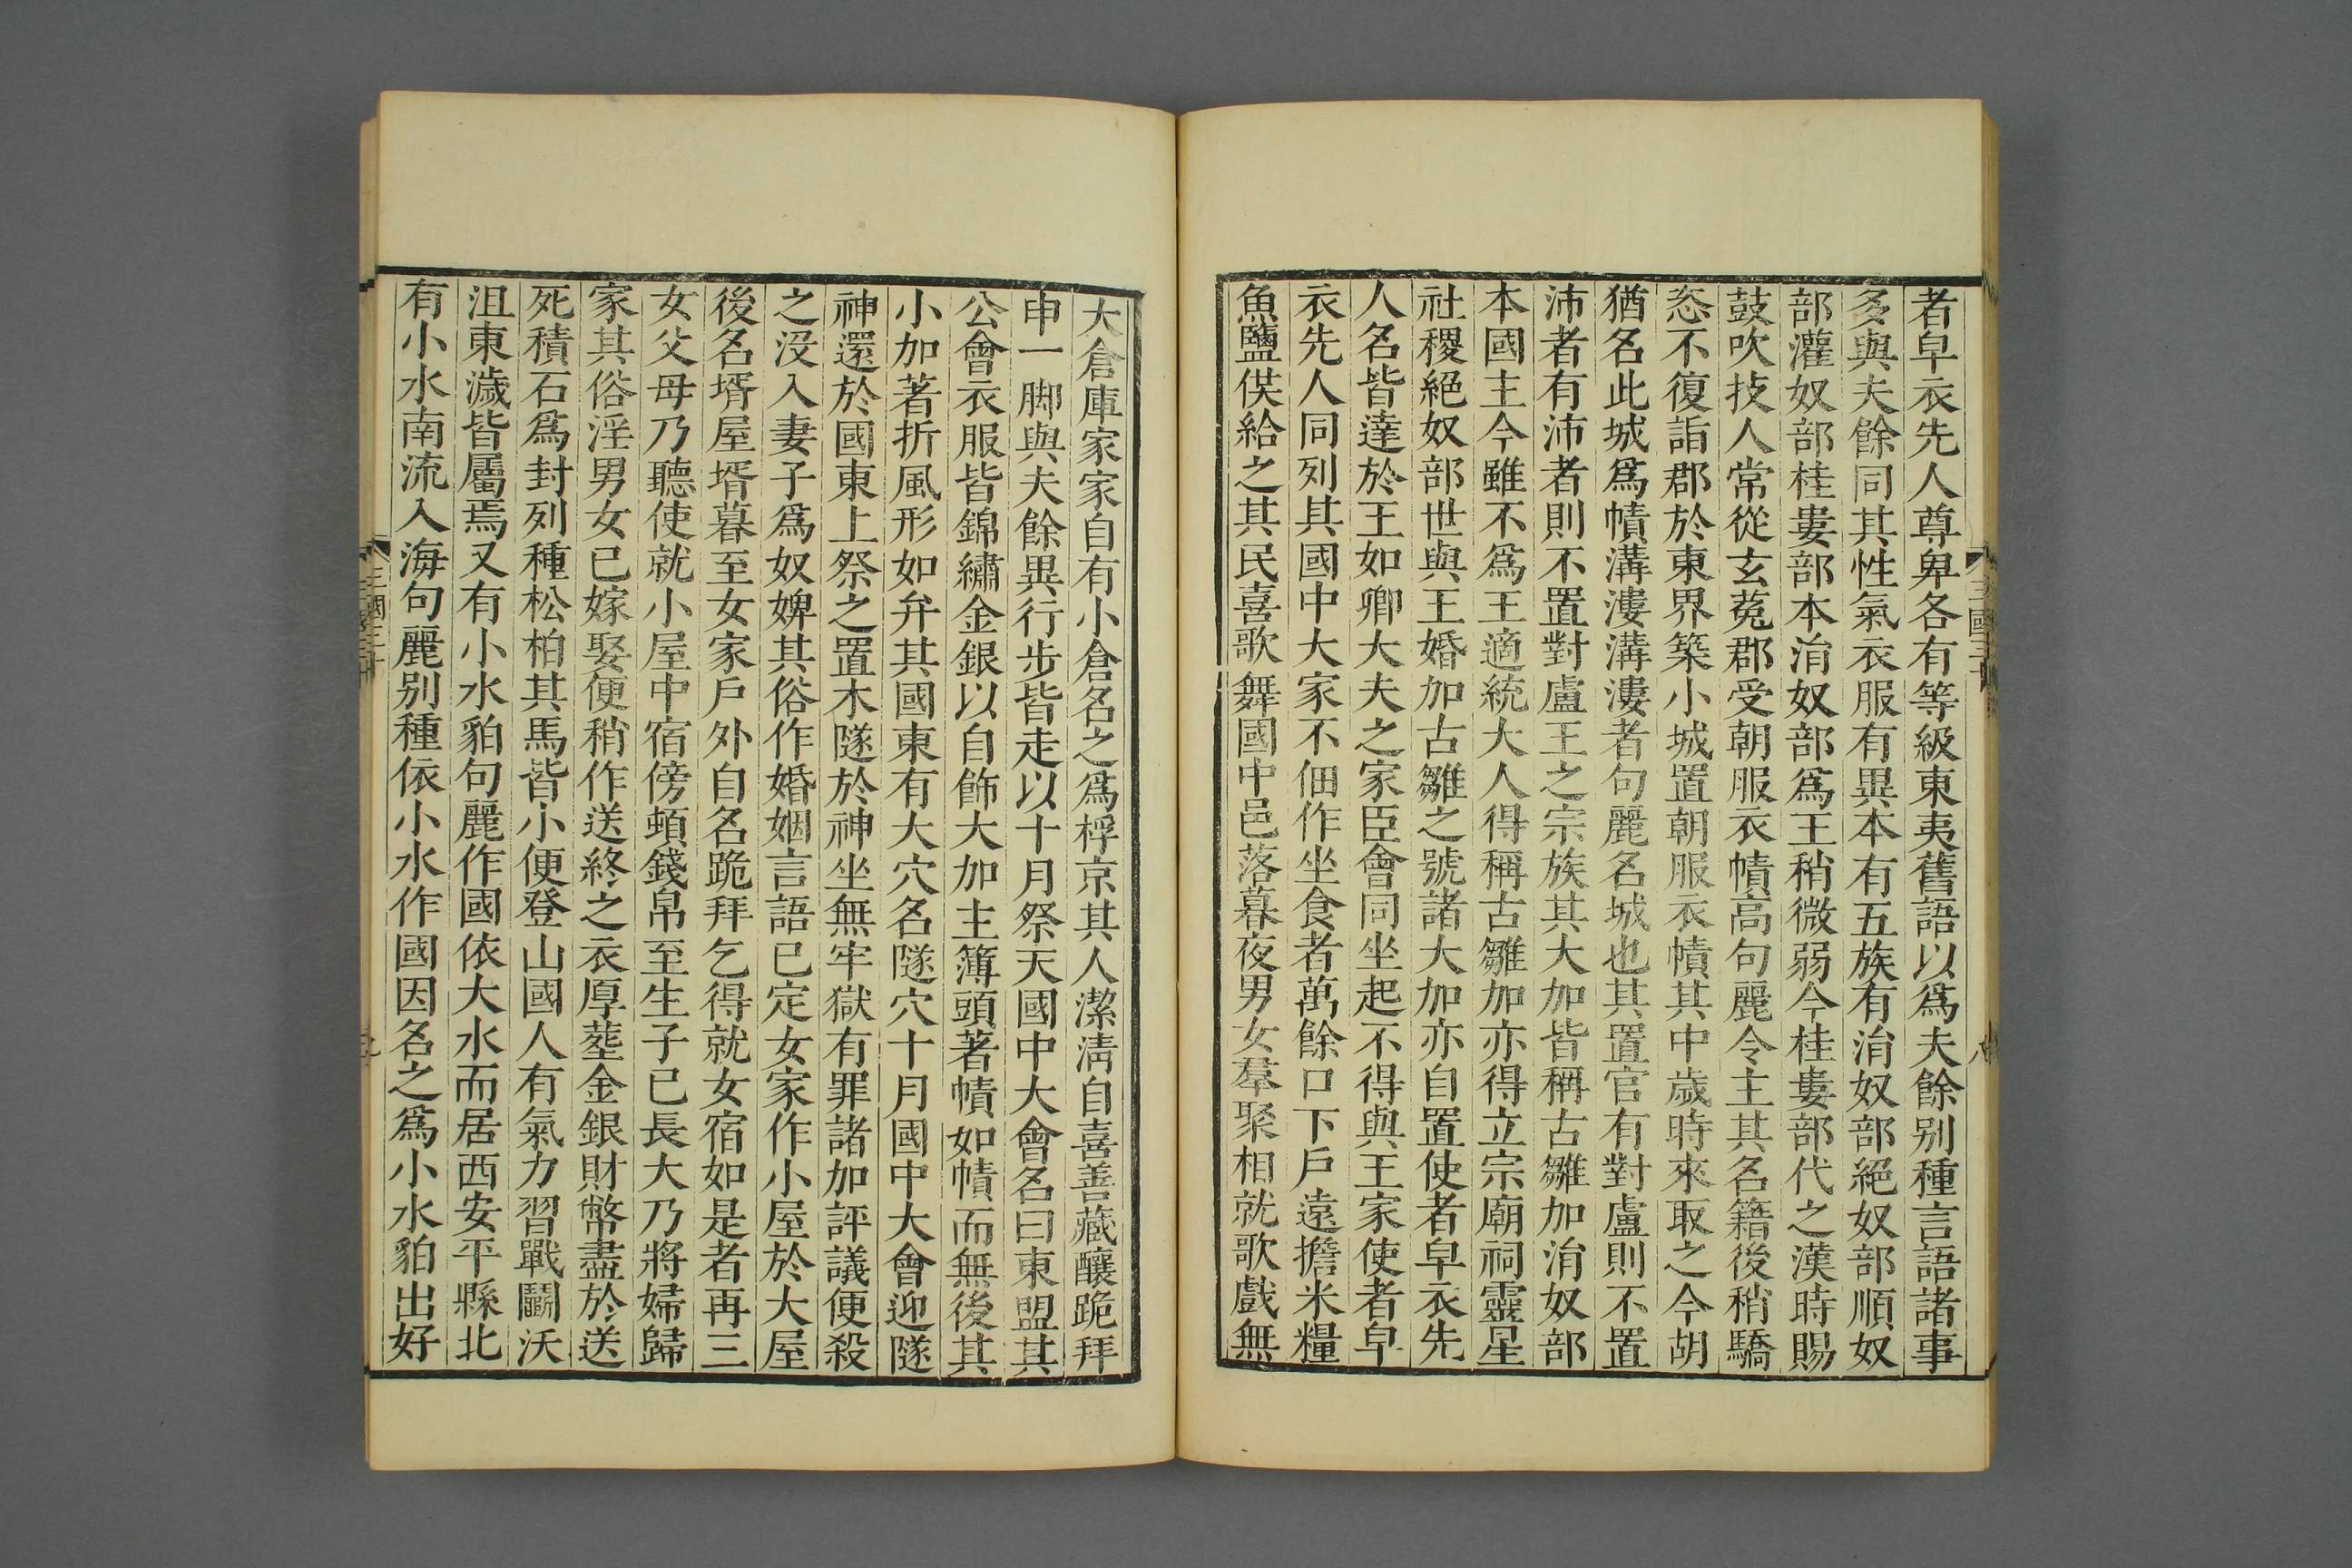 者皁衣先人尊卑各有等級東夷舊語以爲夫餘别種言語諸事
多與夫餘同其性氣衣服有異本有五族有消奴部絕奴部順奴
部灌奴部桂婁部本消奴部爲王稍微弱今桂婁部代之漢時賜
鼓吹技人常從玄菟郡受朝服衣幘高句麗令主其名籍後稍驕
恣不復詣郡於東界築小城置朝服衣幘其中歲時來取之今胡
猶名此城爲幘溝漊溝漊者句麗名城也其置官有對盧則不置
沛者有沛者則不置對盧王之宗族其大加皆稱古雛加消奴部
本國主今雖不爲王適統大人得稱古雛加亦得立宗廟祠靈星
社稷絕奴部世與王婚加古雛之號諸大加亦自置使者皁衣先
人名皆達於王如卿大夫之家臣會同坐起不得與王家使者皁
衣先人同列其國中大家不佃作坐食者萬餘口下戶遠擔米糧
魚鹽供給之其民喜歌舞國中邑落暮夜男女羣聚相就歌戲無
三國三十
八
大倉庫家家自有小倉名之爲桴京其人潔淸自喜善藏釀跪拜
申一脚與夫餘異行步皆走以十月祭天國中大會名曰東盟其
公會衣服皆錦繡金銀以自飾大加主簿頭著幘如幘而無後其
小加著折風形如弁其國東有大穴名隧穴十月國中大會迎隧
神還於國東上祭之置木隧於神坐無牢獄有罪諸加評議便殺
之沒入妻子爲奴婢其俗作婚姻言語已定女家作小屋於大屋
後名壻屋壻暮至女家戶外自名跪拜乞得就女宿如是者再三
女父母乃聽使就小屋中宿傍頓錢帛至生子已長大乃將婦歸
家其俗淫男女已嫁娶便稍作送終之衣厚葬金銀財幣盡於送
死積石爲封列種松柏其馬皆小便登山國人有氣力習戰鬭沃
沮東濊皆屬焉又有小水貊句麗作國依大水而居西安平縣北
有小水南流入海句麗别種依小水作國因名之爲小水貊出好
三國三十